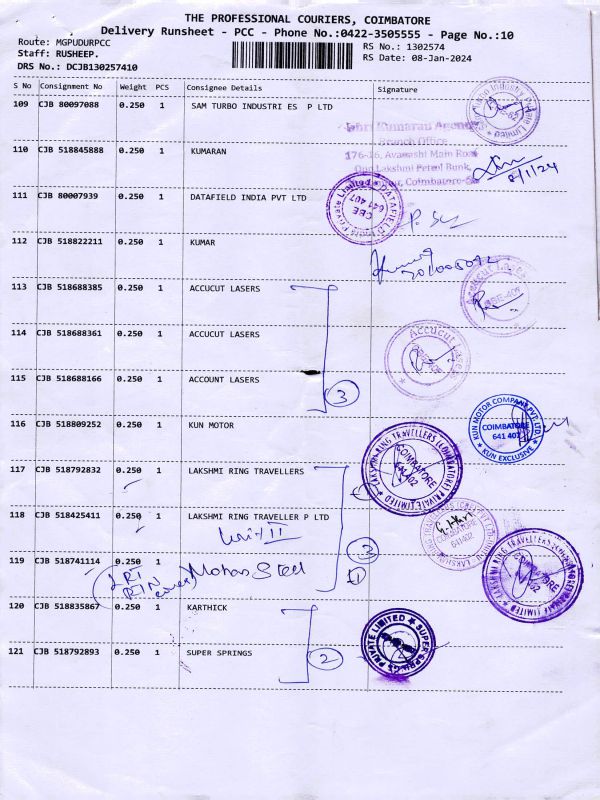 THE PROFESSIONAL COURIERS, COIMBATORE
Delivery Runsheet - PCC - Phone No.:0422-3505555 - Page No.:10
Route: MGPUDURPCC
RS No.: 1302574
Staff: RUSHEEP.
RS Date: 08-Jan-2024
DRS No.: DCJB130257410
S No Consignment No Weight PCS Consignee Details Signature
109 CJB 80097088 0.250 1 SAM TURBO INDUSTRI ES P LTD
Shri Kumaran Agency
Branch Office
110 CJB 518845888 0.250 1 KUMARAN
176-26, Avanashi Main Road
Opp Lakshmi Petrol Bunk,
Coimbatore
8/1/24
111 CJB 80007939 0.250 1 DATAFIELD INDIA PVT LTD
DATAFIELD India Private Limited
CBE
641 407
112 CJB 518822211 0.250 1 KUMAR
113 CJB 518688385 0.250 1 ACCUCUT LASERS
Accucut Lasers
114 CJB 518688361 0.250 1 ACCUCUT LASERS
Accucut Lasers
115 CJB 518688166 0.250 1 ACCOUNT LASERS
3
116 CJB 518809252 0.250 1 KUN MOTOR
KUN MOTOR COMPANY PVT. LTD.
COIMBATORE
641 402
KUN EXCLUSIVE
117 CJB 518792832 0.250 1 LAKSHMI RING TRAVELLERS
LAKSHMI RING TRAVELLERS (COIMBATORE) PRIVATE LIMITED
COIMBATORE
641 402
118 CJB 518425411 0.250 1 LAKSHMI RING TRAVELLER P LTD
Unit II
3
119 CJB 518741114 0.250 1 Mohan Steel
1
LAKSHMI RING TRAVELLERS (COIMBATORE) PRIVATE LIMITED
COIMBATORE
120 CJB 518835867 0.250 1 KARTHICK
121 CJB 518792893 0.250 1 SUPER SPRINGS
2
SUPER SPRINGS PRIVATE LIMITED